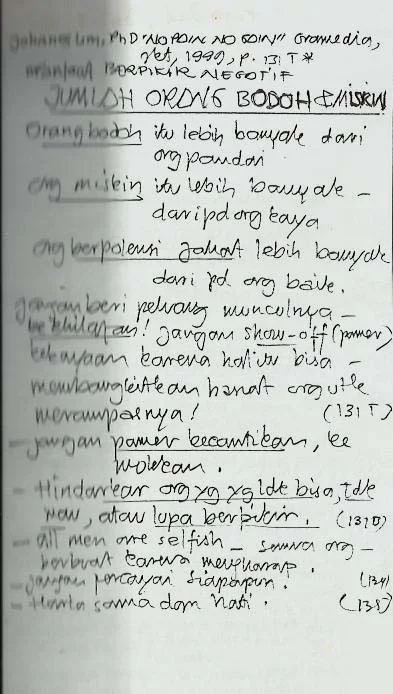 Johanes Lim, PhD "NO PAIN NO GAIN" Gramedia,
1999, p. 131 T *
manfaat BERPIKIR NEGATIF
JUMLAH ORANG BODOH & MISKIN
Orang bodoh itu lebih banyak dari
org pandai
org miskin itu lebih banyak –
daripd org kaya
org berpotensi jahat lebih banyak
dari pd org baik.
jangan beri peluang munculnya –
kekhilafan! jangan show-off (pamer)
kekayaan karena hal itu bisa –
membangkitkan hasrat org utk
merampasnya! (131 T)
– jangan pamer kecantikan, ke
molekan.
– Hindarkan org yg yg tdk bisa, tdk
mau, atau lupa berpikir. (131 D)
– all men are selfish – semua org –
berbuat karena mengharap.
– jangan percayai siapapun. (134)
– Harta sama dgn hati. (135)